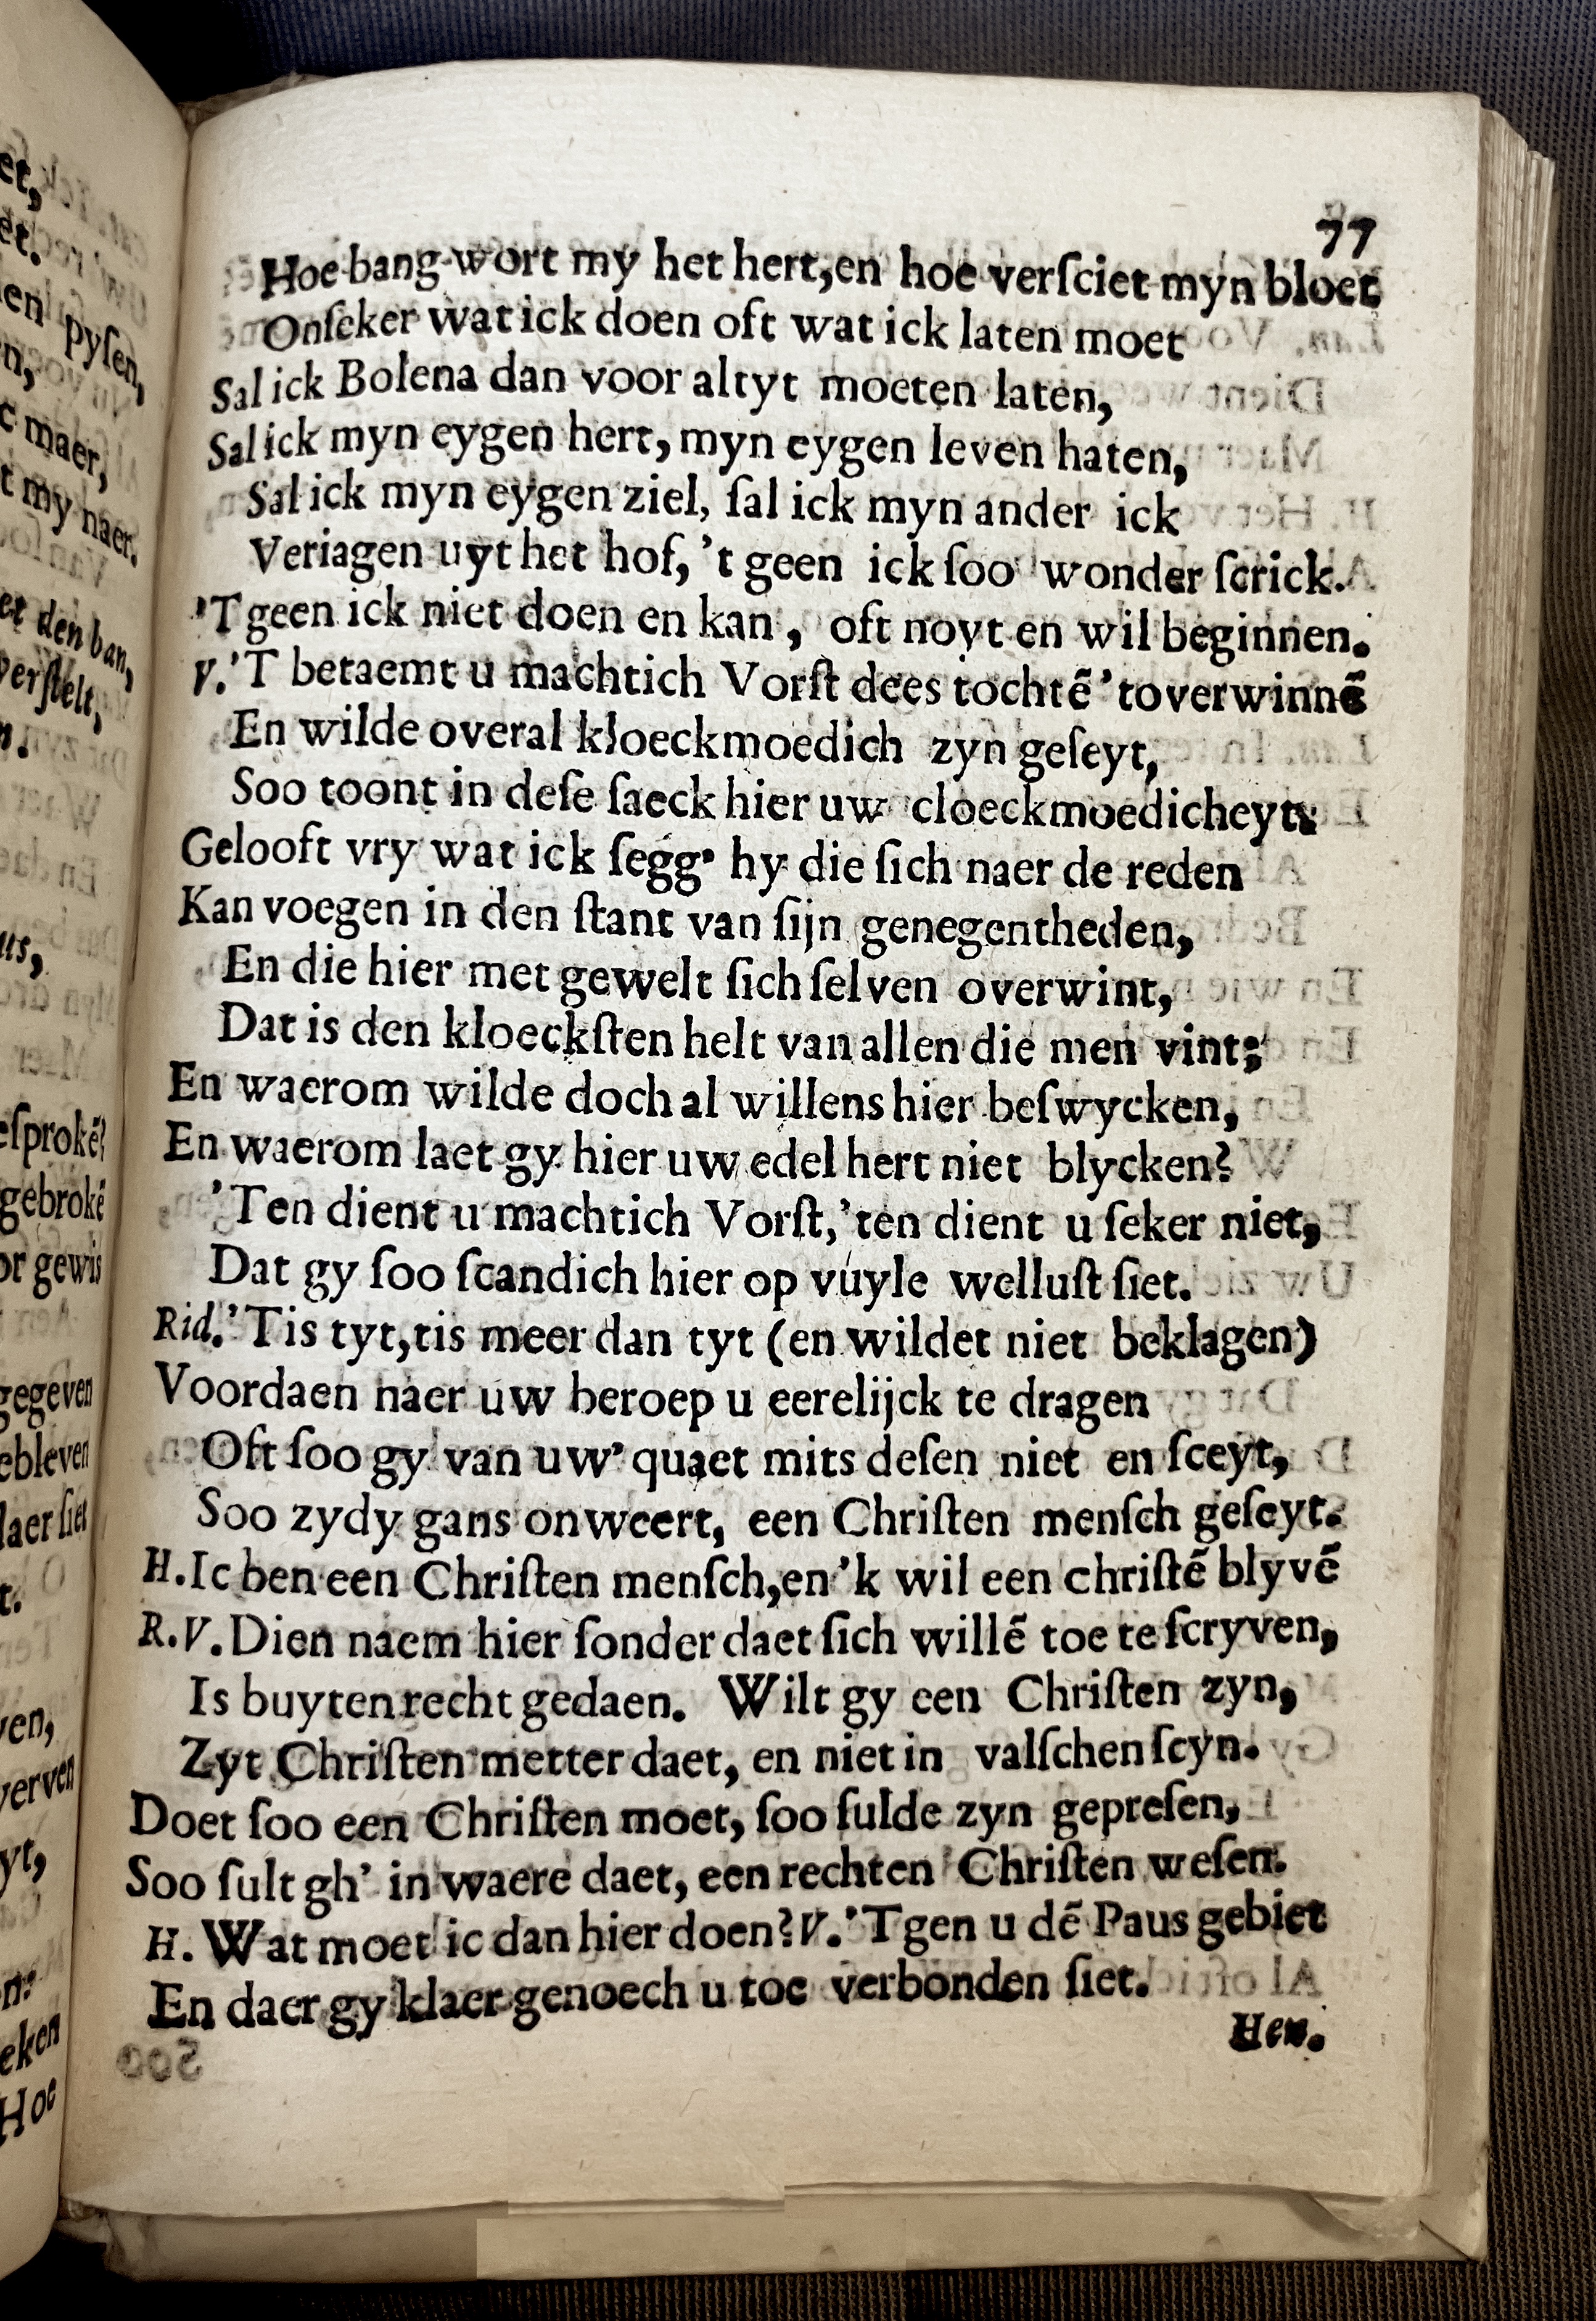 77
Hoe bang wort my het hert,en hoe verſciet myn bloet
Onſeker wat ick doen oft wat ick laten moet
Sal ick Bolena dan voor altyt moeten laten,
Sal ick myn eygen hert, myn eygen leven haten,
Sal ick myn eygen ziel, ſal ick myn ander ick
Veriagen uyt het hof, 't geen ick ſoo wonder ſcrick.
'T geen ick niet doen en kan, oft noyt en wil beginnen.
V.'T betaemt u machtich Vorſt dees tochtē 't overwinnē
En wilde overal kloeckmoedich zyn geſeyt,
Soo toont in deſe ſaeck hier uw cloeckmoedicheyt.
Gelooft vry wat ick ſegg' hy die ſich naer de reden
Kan voegen in den ſtant van ſijn genegentheden,
En die hier met gewelt ſich ſelven overwint,
Dat is den kloeckſten helt van allen die men vint;
En waerom wilde doch al willens hier beſwycken,
En waerom laet gy hier uw edel hert niet blycken?
'Ten dient u machtich Vorſt,'ten dient u ſeker niet,
Dat gy ſoo ſcandich hier op vuyle welluſt ſiet.
Rid.'Tis tyt,tis meer dan tyt (en wildet niet beklagen)
Voordaen naer uw beroep u eerelijck te dragen
Oft ſoo gy van uw' quaet mits deſen niet en ſceyt,
Soo zydy gans onweert, een Chriſten menſch geſeyt.
H.Ic ben een Chriſten menſch,en 'k wil een chriſtē blyvē
R.V.Dien naem hier ſonder daet ſich willē toe te ſcryven,
Is buyten recht gedaen. Wilt gy een Chriſten zyn,
Zyt Chriſten metter daet, en niet in valſchen ſcyn.
Doet ſoo een Chriſten moet, ſoo ſulde zyn gepreſen,
Soo ſult gh' in waere daet, een rechten Chriſten weſen.
H. Wat moet ic dan hier doen? V.'T gen u dē Paus gebiet
En daer gy klaer genoech u toe verbonden ſiet.
Hen.